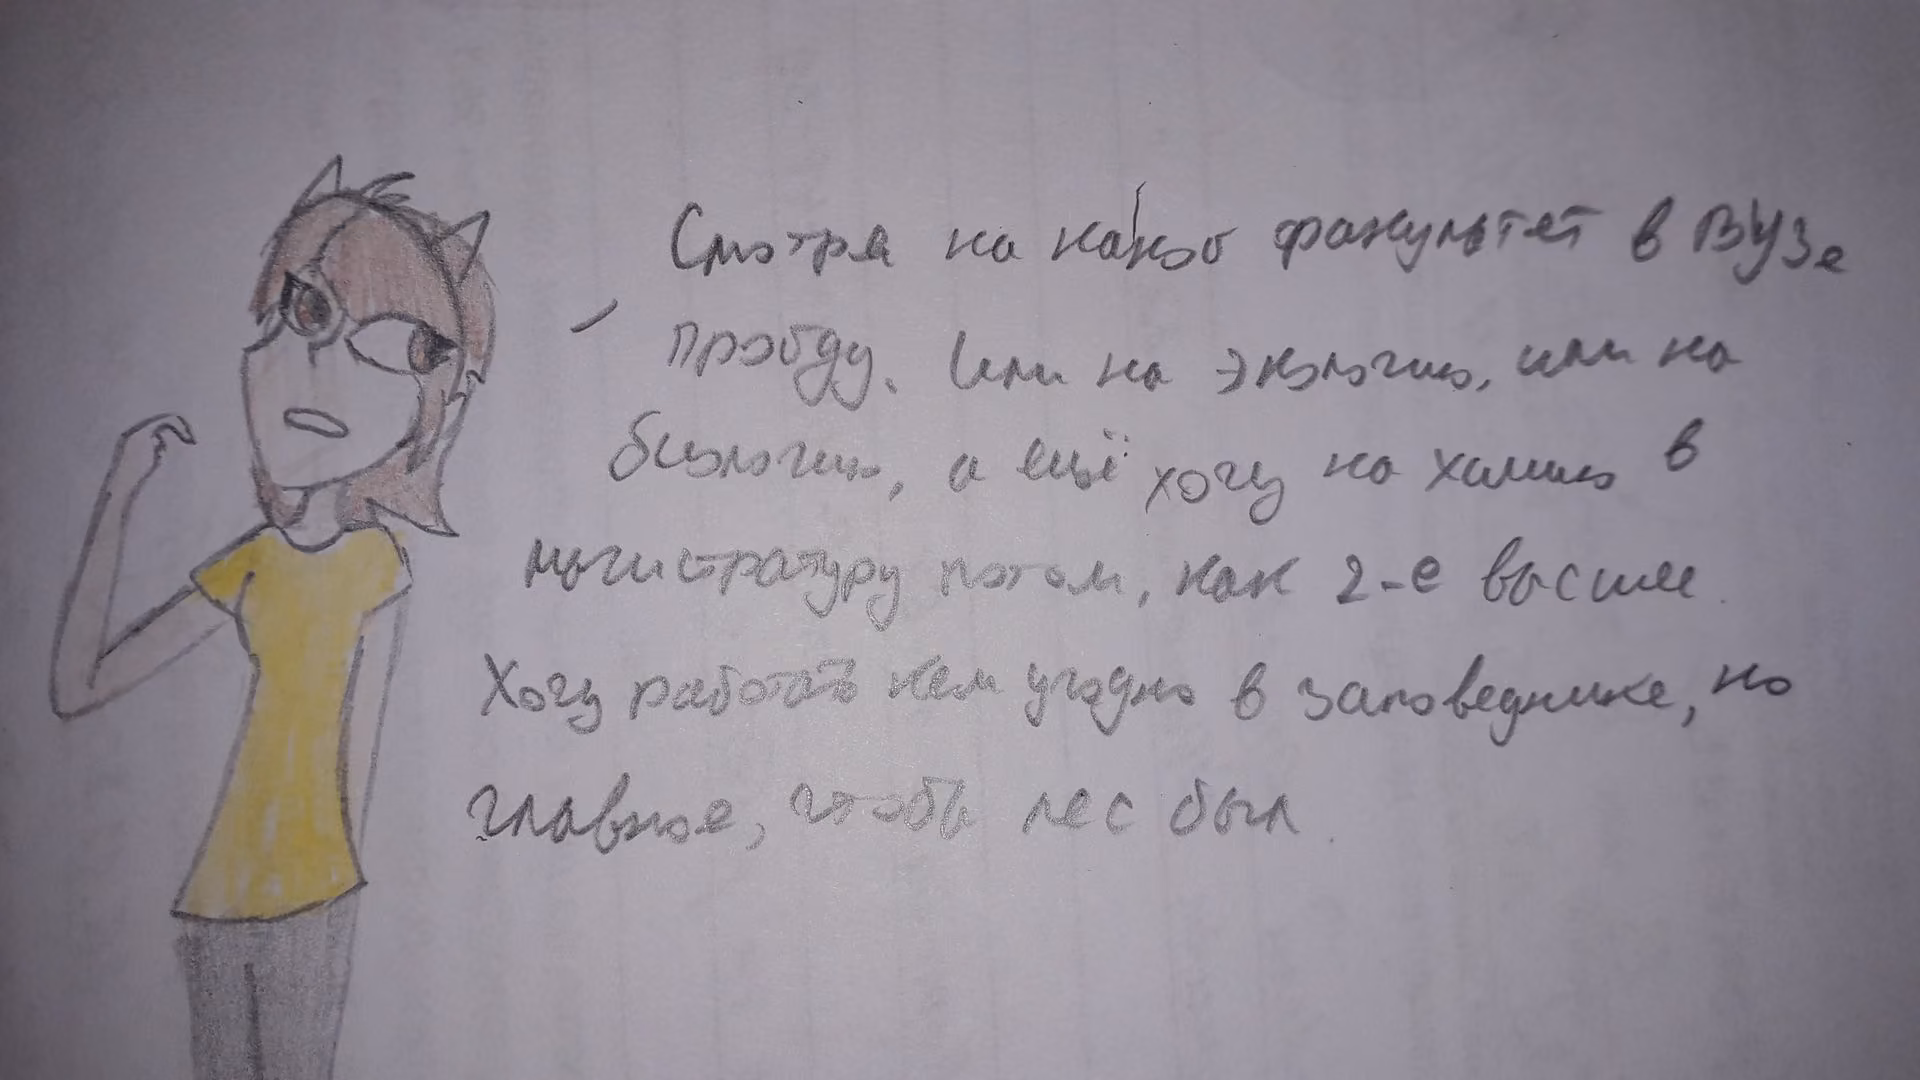 Смотря на какой факультет в ВУЗе
пройду. Или на экологию, или на
биологию, а ещё хочу на химию в
магистратуру потом, как 2-е высшее.
Хочу работать кем угодно в заповеднике, но
главное, чтобы лес был.